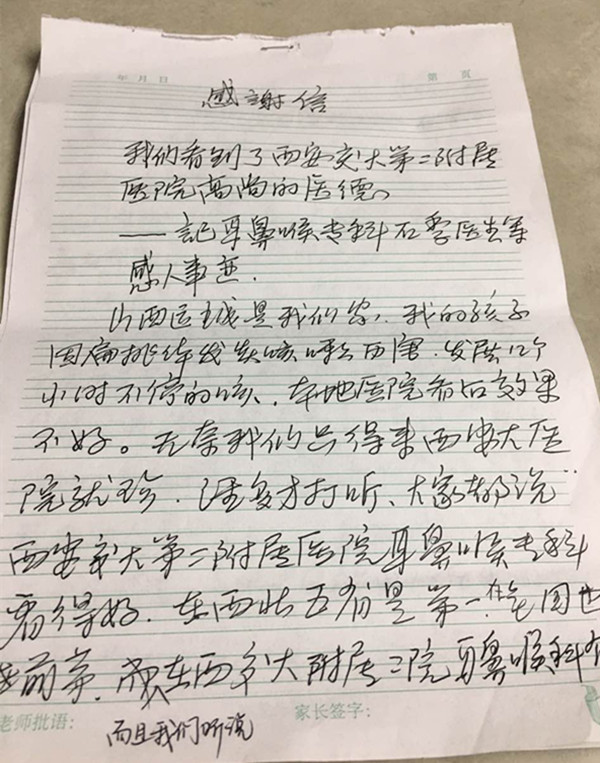 年 月 日 第 页
感謝信
我们看到了西安交大第二附属
医院高尚的医德。
——記耳鼻喉专科石 医生等
感人事迹.
山西运城是我们家. 我的孩子
因扁桃体发炎咳嗽历害. 发展12个
小时不停的咳. 本地医院看后效果
不好。无奈我们只得来西安大医
院就珍. 打听、大家都说
西安交大第二附属医院耳鼻喉专科
看得好. 在西北五省是第一. 在全国也
前茅. 西交大附属二院耳鼻喉科
老师批语: 家长签字:
而且我们听说